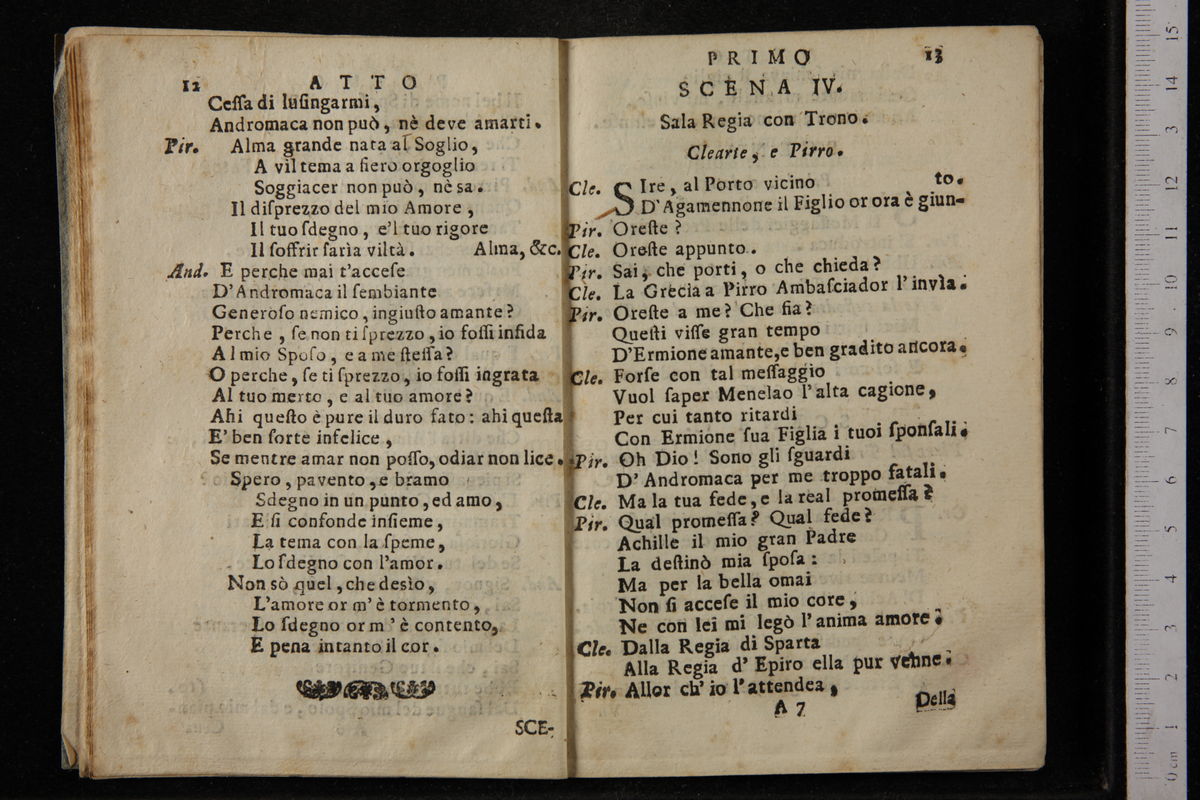 12 ATTO
Ceſſa di luſingarmi,
Andromaca non può, nè deve amarti.
Pir. Alma grande nata al Soglio,
A vil tema a fiero orgoglio
Soggiacer non può, nè sa.
Il diſprezzo del mio Amore,
Il tuo ſdegno, e'l tuo rigore
Il ſoffrir farìa viltà. Alma, &c.
And. E perche mai t'acceſe
D'Andromaca il ſembiante
Generoſo nemico, ingiuſto amante?
Perche, ſe non ti ſprezzo, io foſſi infida
Al mio Spoſo, e a me ſteſſa?
O perche, ſe ti ſprezzo, io foſſi ingrata
Al tuo merto, e al tuo amore?
Ahi queſto è pure il duro fato: ahi queſta
E' ben ſorte infelice,
Se mentre amar non poſſo, odiar non lice.
Spero, pavento, e bramo
Sdegno in un punto, ed amo,
E ſi confonde inſieme,
La tema con la ſpeme,
Lo ſdegno con l'amor.
Non sò quel, che desìo,
L'amore or m'è tormento,
Lo ſdegno or m'è contento,
E pena intanto il cor.
SCE-
PRIMO 13
SCENA IV.
Sala Regia con Trono.
Clearte, e Pirro.
Cle. SIre, al Porto vicino to.
D'Agamennone il Figlio or ora è giun-
Pir. Oreſte?
Cle. Oreſte appunto.
Pir. Sai, che porti, o che chieda?
Cle. La Grecia a Pirro Ambaſciador l'invìa.
Pir. Oreſte a me? Che fia?
Queſti viſſe gran tempo
D'Ermione amante, e ben gradito ancora.
Cle. Forſe con tal meſſaggio
Vuol ſaper Menelao l'alta cagione,
Per cui tanto ritardi
Con Ermione ſua Figlia i tuoi ſponſali.
Pir. Oh Dio! Sono gli ſguardi
D'Andromaca per me troppo fatali.
Cle. Ma la tua fede, e la real promeſſa?
Pir. Qual promeſſa? Qual fede?
Achille il mio gran Padre
La deſtinò mia ſpoſa:
Ma per la bella omai
Non ſi acceſe il mio core,
Ne con lei mi legò l'anima amore.
Cle. Dalla Regia di Sparta
Alla Regia d'Epiro ella pur venne.
Pir. Allor ch'io l'attendea,
A 7 Della
15
14
13
12
11
10
9
8
7
6
5
4
3
2
1
0 cm